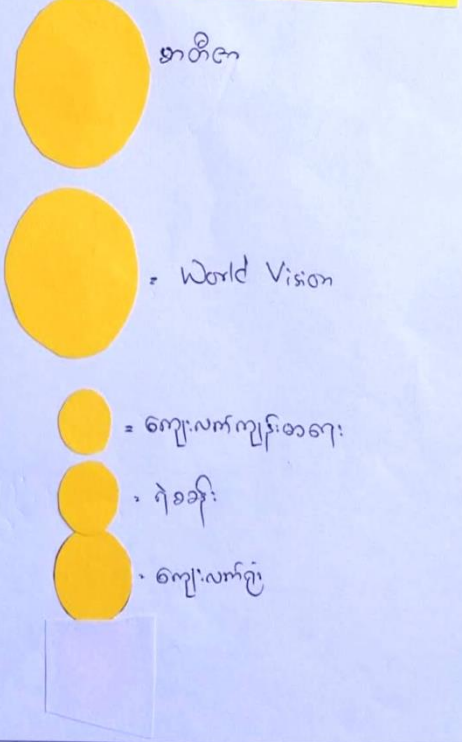 မာတိကာ
= World Vision
= ကျေးလက်ကျန်းမာရေး
= ရဲစခန်း
= ကျေးလက်ရုံး